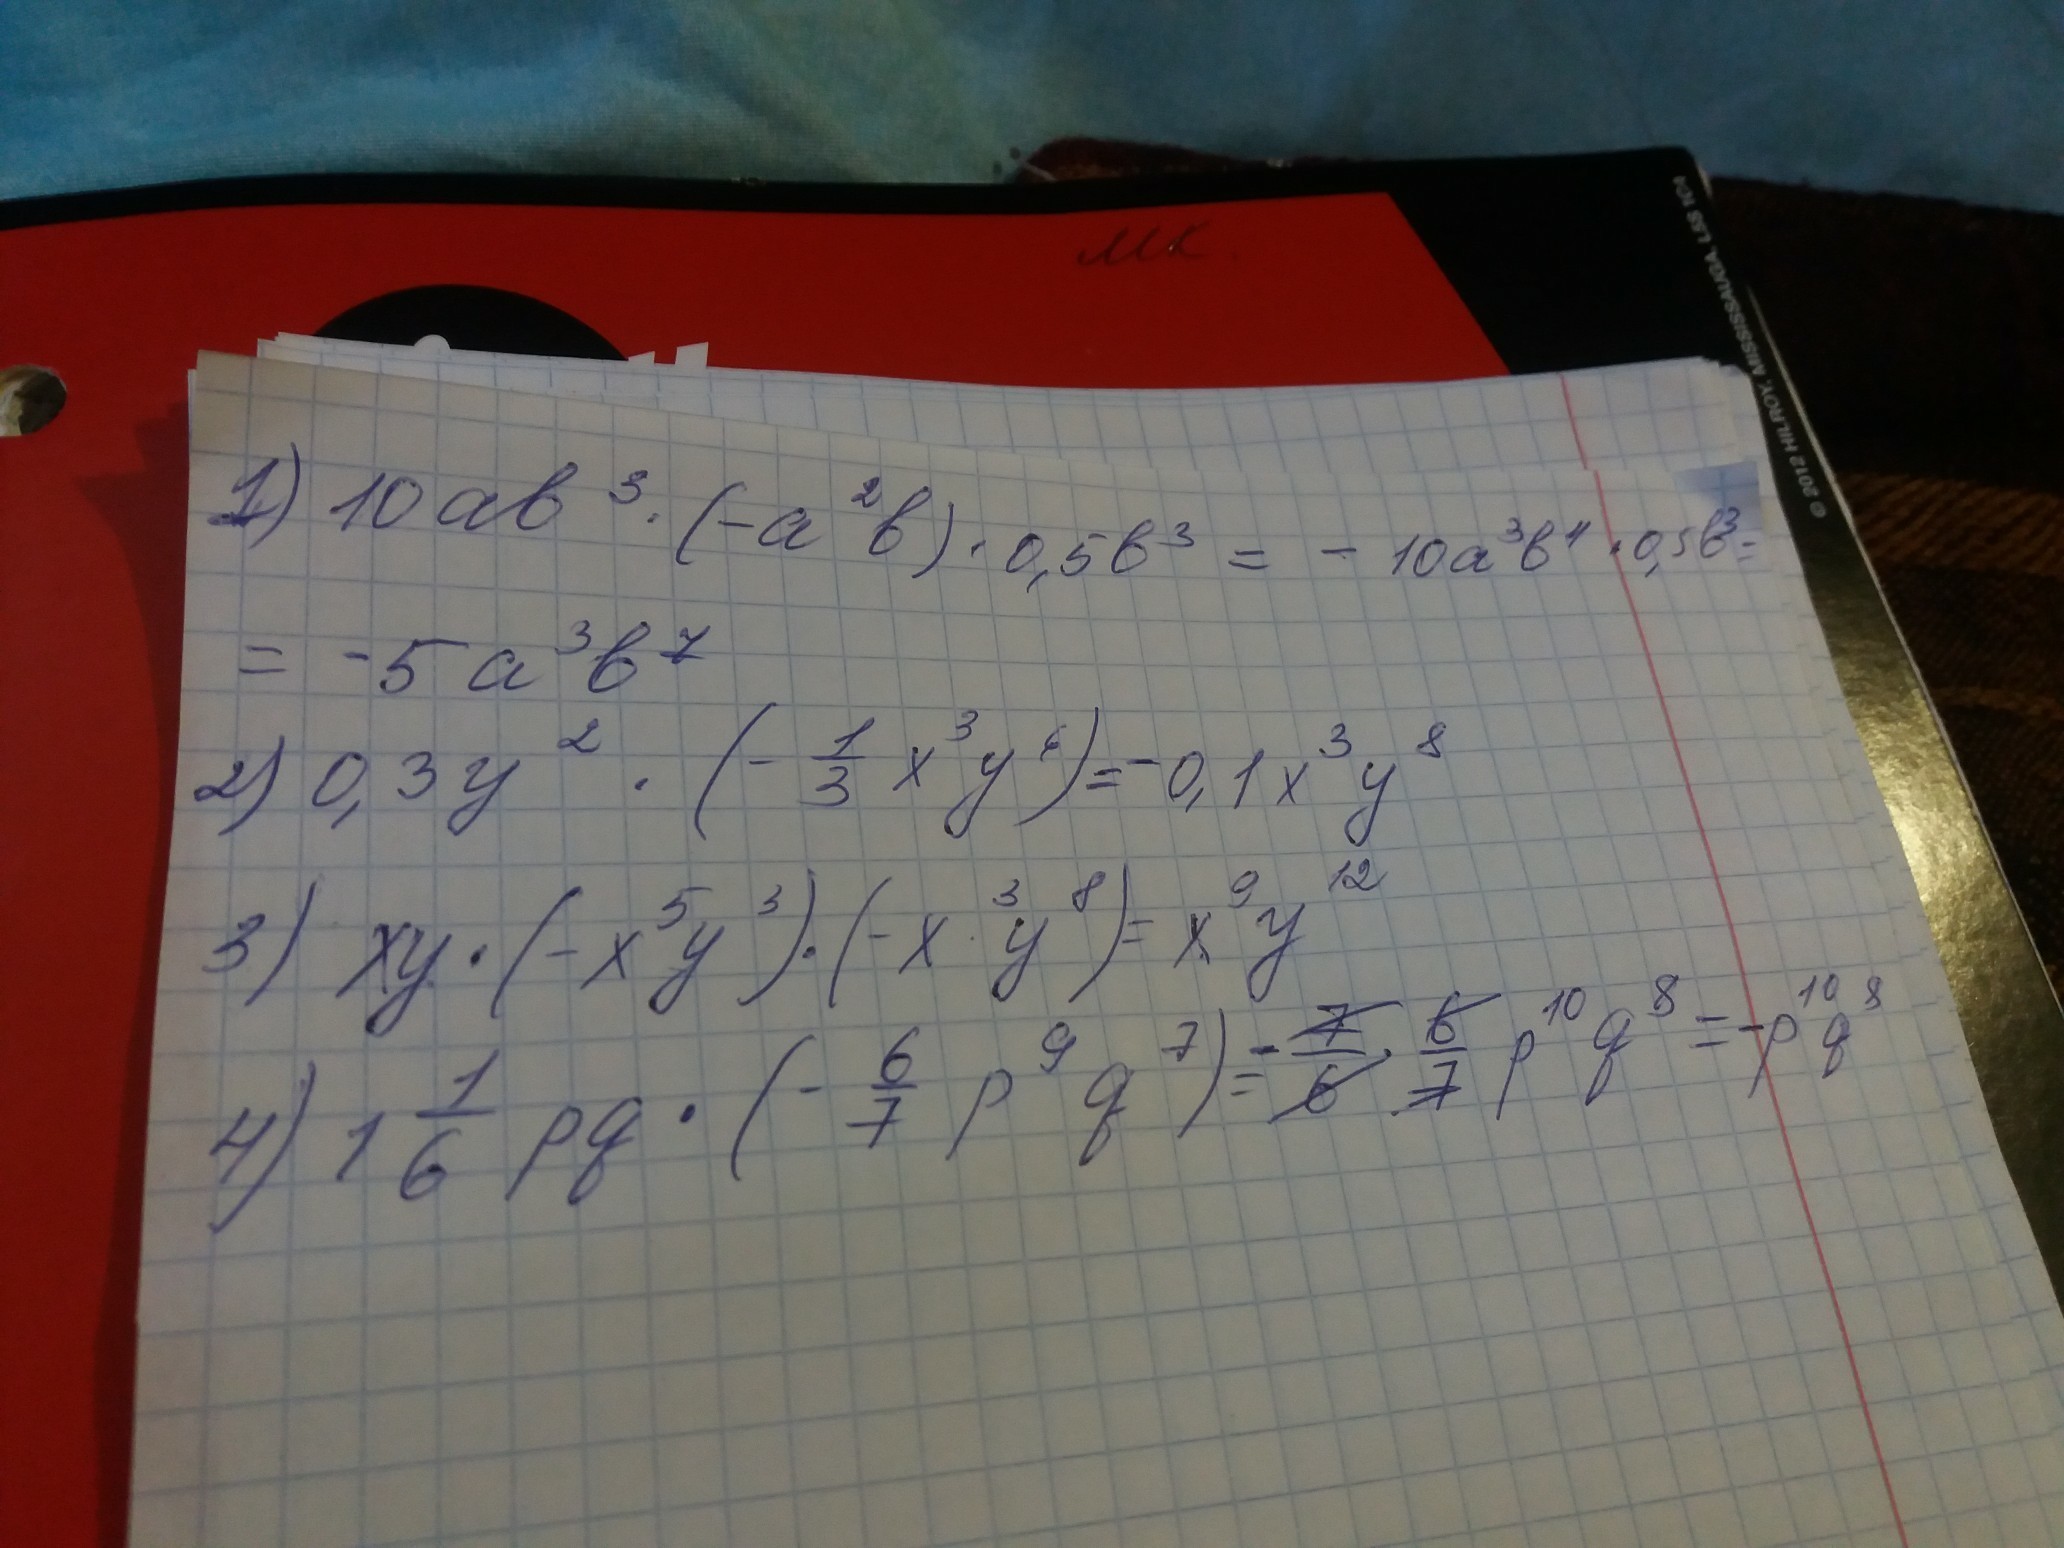 МК
© 2012 HILROY, MISSISSAUGA, L5S 1C4
1) 10ab³·(-a²b)·0,5b³ = -10a³b⁴·0,5b³=
= -5a³b⁷
2) 0,3y²·(-1/3 x³y⁶)=-0,1x³y⁸
3) xy·(-x⁵y³)·(-x³y⁸)=x⁹y¹²
4) 1 1/6 pq·(-6/7 p⁹q⁷)=-7/6·6/7 p¹⁰q⁸=-p¹⁰q⁸